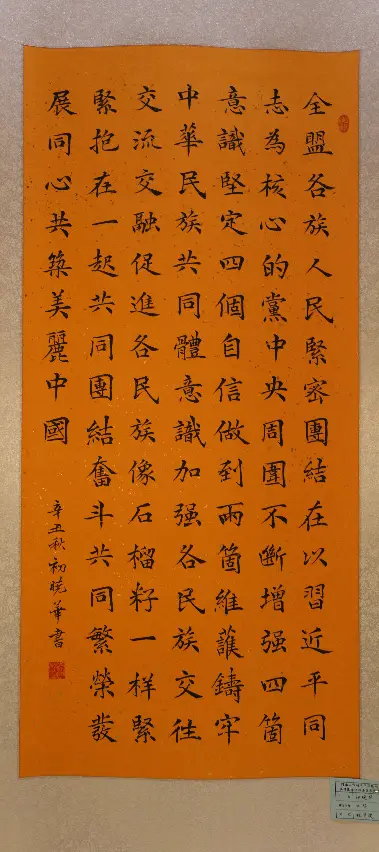 全盟各族人民緊密團結在以習近平同
志為核心的黨中央周圍不斷增强四箇
意識堅定四個自信做到兩箇維護鑄牢
中華民族共同體意識加强各民族交往
交流交融促進各民族像石榴籽一样緊
緊抱在一起共同團結奮斗共同繁榮發
展同心共築美麗中國
辛丑秋初曉華書